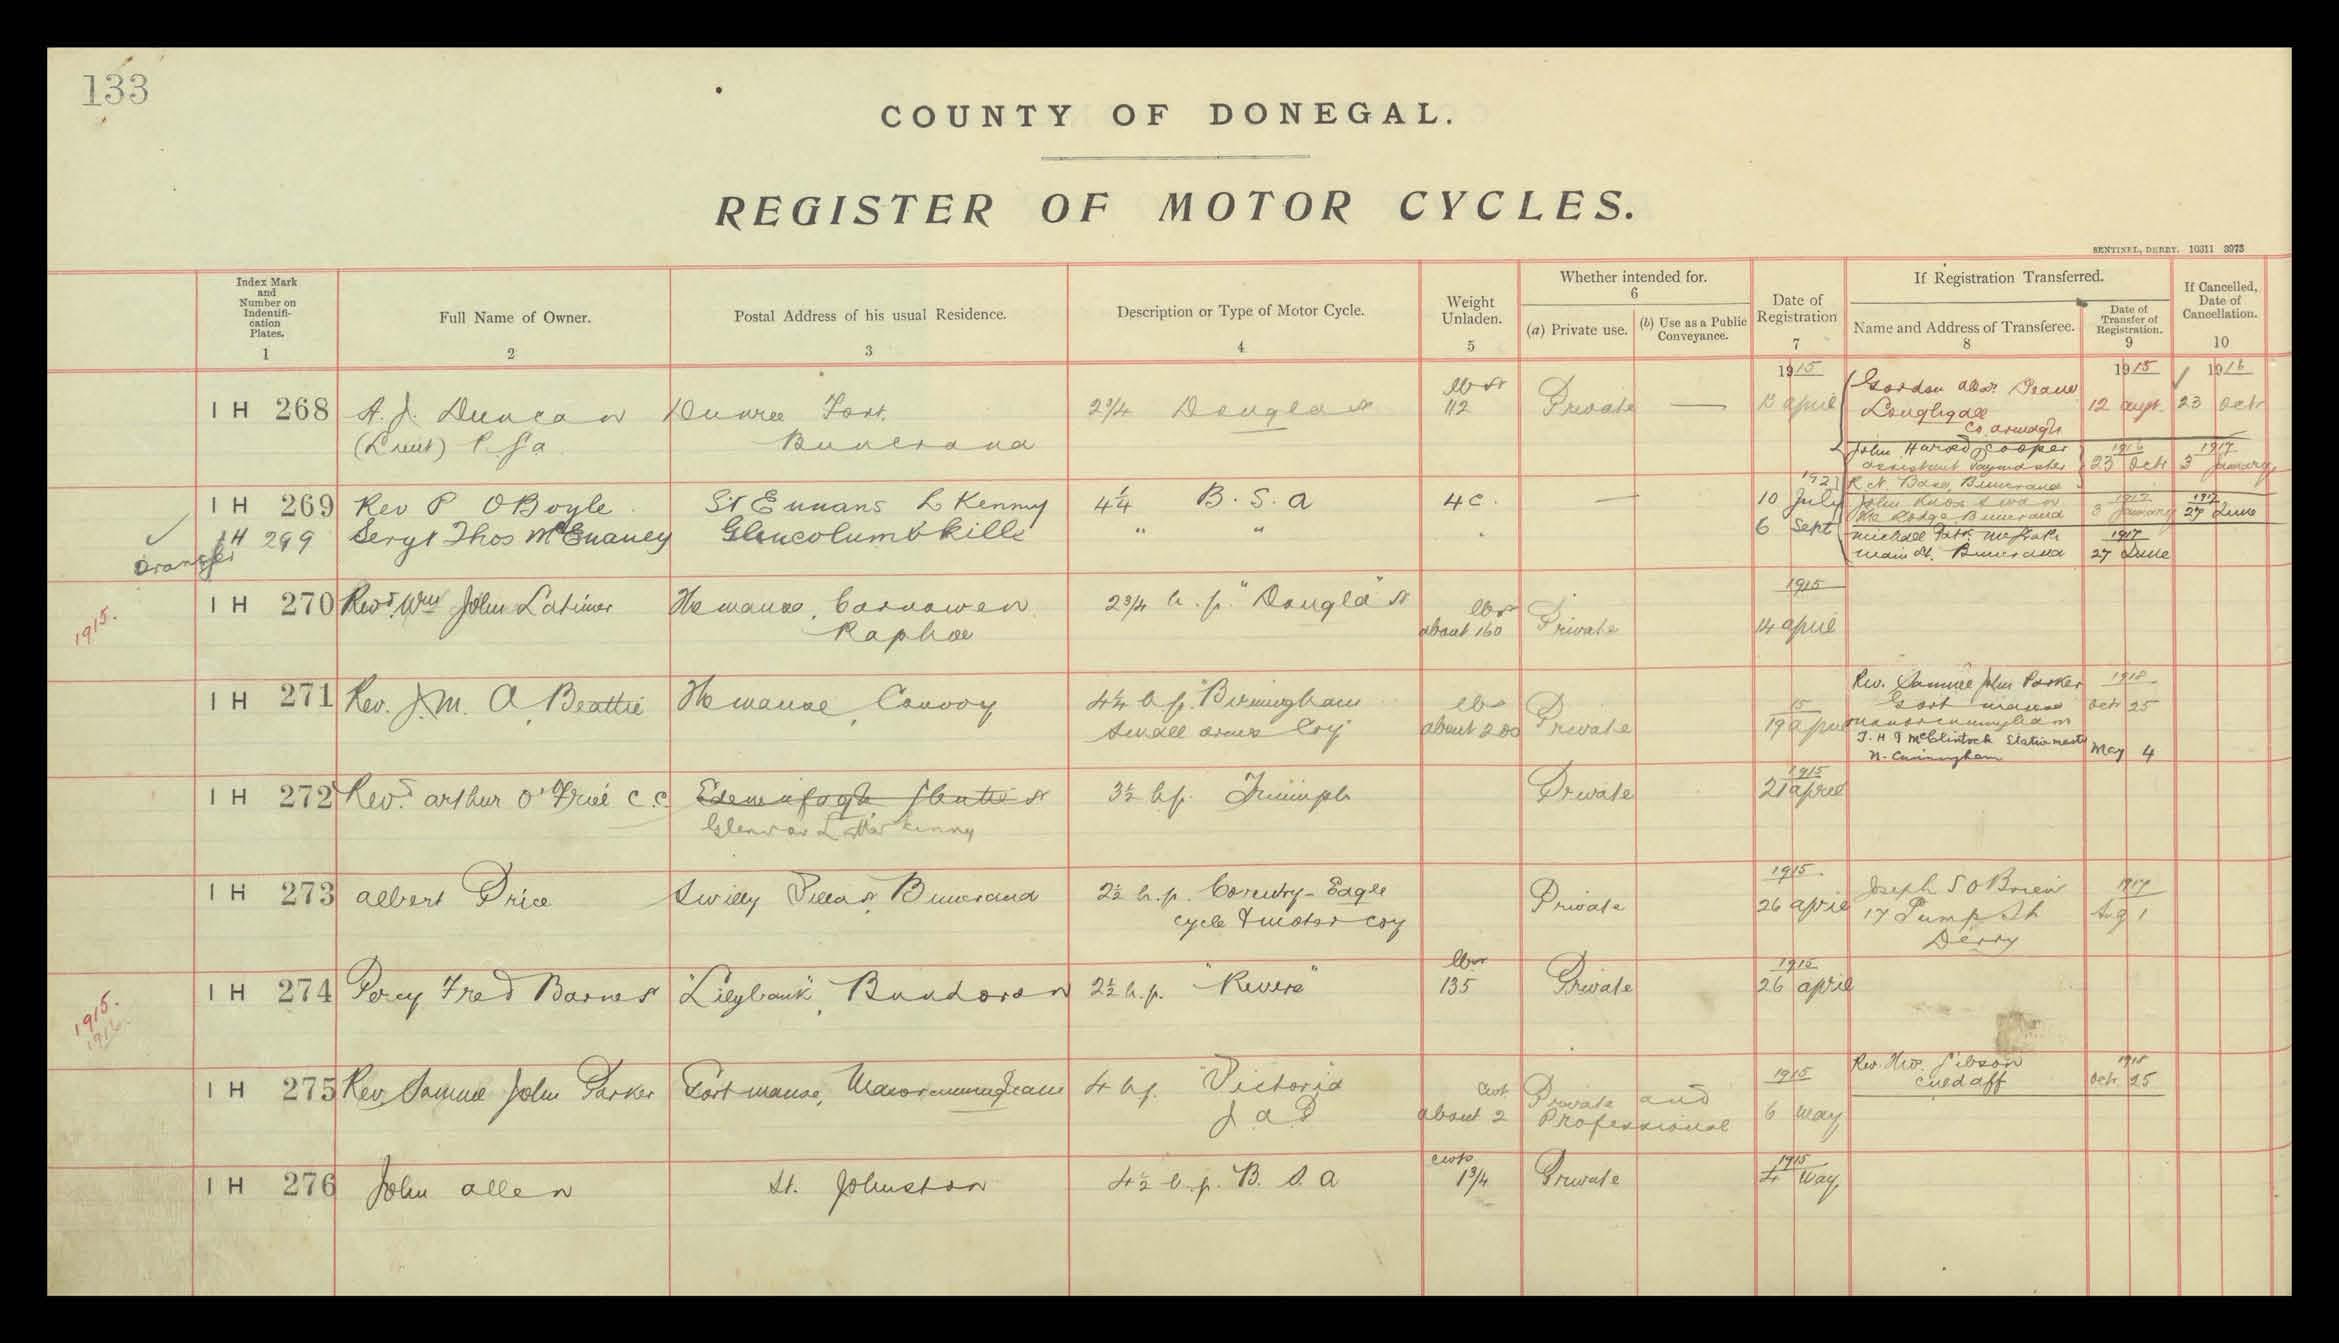 133
COUNTY OF DONEGAL.
REGISTER OF MOTOR CYCLES.
SENTINEL, DERRY. 10311 3973
Index Mark and Number on Indentifi-cation Plates.
1
Full Name of Owner.
2
Postal Address of his usual Residence.
3
Description or Type of Motor Cycle.
4
Weight Unladen.
5
Whether intended for.
6
(a) Private use.
(b) Use as a Public Conveyance.
Date of Registration
7
If Registration Transferred.
Name and Address of Transferee.
8
Date of Transfer of Registration.
9
If Cancelled, Date of Cancellation.
10
1915 1915 1916
IH 268 A. J. Duncan Dunree Fort. 2¾ Douglas lbs 112 Private — 13 April Gordon Loughgall Co. Armagh 12 Augt. 23 Octr
(Lieut) R.G.A. Buncrana
John Harold Cooper 1916 1917
Assistant Paymaster 23 Octr 3 January
R.N. Base, Buncrana
IH 269 Rev P O Boyle St Eunans L Kenny 4¼ B.S.A 4C. — 1921 10 July John Knox 1917 3 January 1917 27 June
The Lodge Buncrana
IH 299 Sergt Thos McEnaney Glencolumbkille " " 6 Sept Michael Patk. McGrath 1917
Main St. Buncrana 27 June
1915.
IH 270 Revd. Wm John Latimer The manse, Carnowen 2¾ h.p. "Douglas" lbs about 160 Private 1915 14 April
Raphoe
IH 271 Rev. J. M. A. Beattie The manse, Convoy 4¼ h.p. Birmingham lbs about 200 Private 15 19 April Rev. Samuel John Parker 1918
Small Arms Coy Gort manse Octr 25
Manorcunningham
T. H. J McClintock May 4
N. Cunningham
IH 272 Revd. Arthur O'Friel C.C. 3½ h.p. Triumph Private 1915 21 April
Glenvar Letterkenny
IH 273 Albert Price Swilly Villas, Buncrana 2½ h.p. Coventry-Eagle Private 1915 26 April Joseph S O Brien 1917
cycle & motor coy 17 Pump St Aug 1
Derry
1915.
1916.
IH 274 Percy Fred Barnes "Lilybank", Bundoran 2½ h.p. "Revere" lbs 135 Private 1915 26 April
IH 275 Rev Samuel John Parker Gort manse, Manorcunningham 4 h.p. Victoria cwt. about 2 Private and Professional 1915 6 May Rev. Gibson 1918
J A P Culdaff Octr 25
IH 276 John Allen St. Johnston 4½ h.p. B.S.A cwts 1¾ Private 1915 4 May